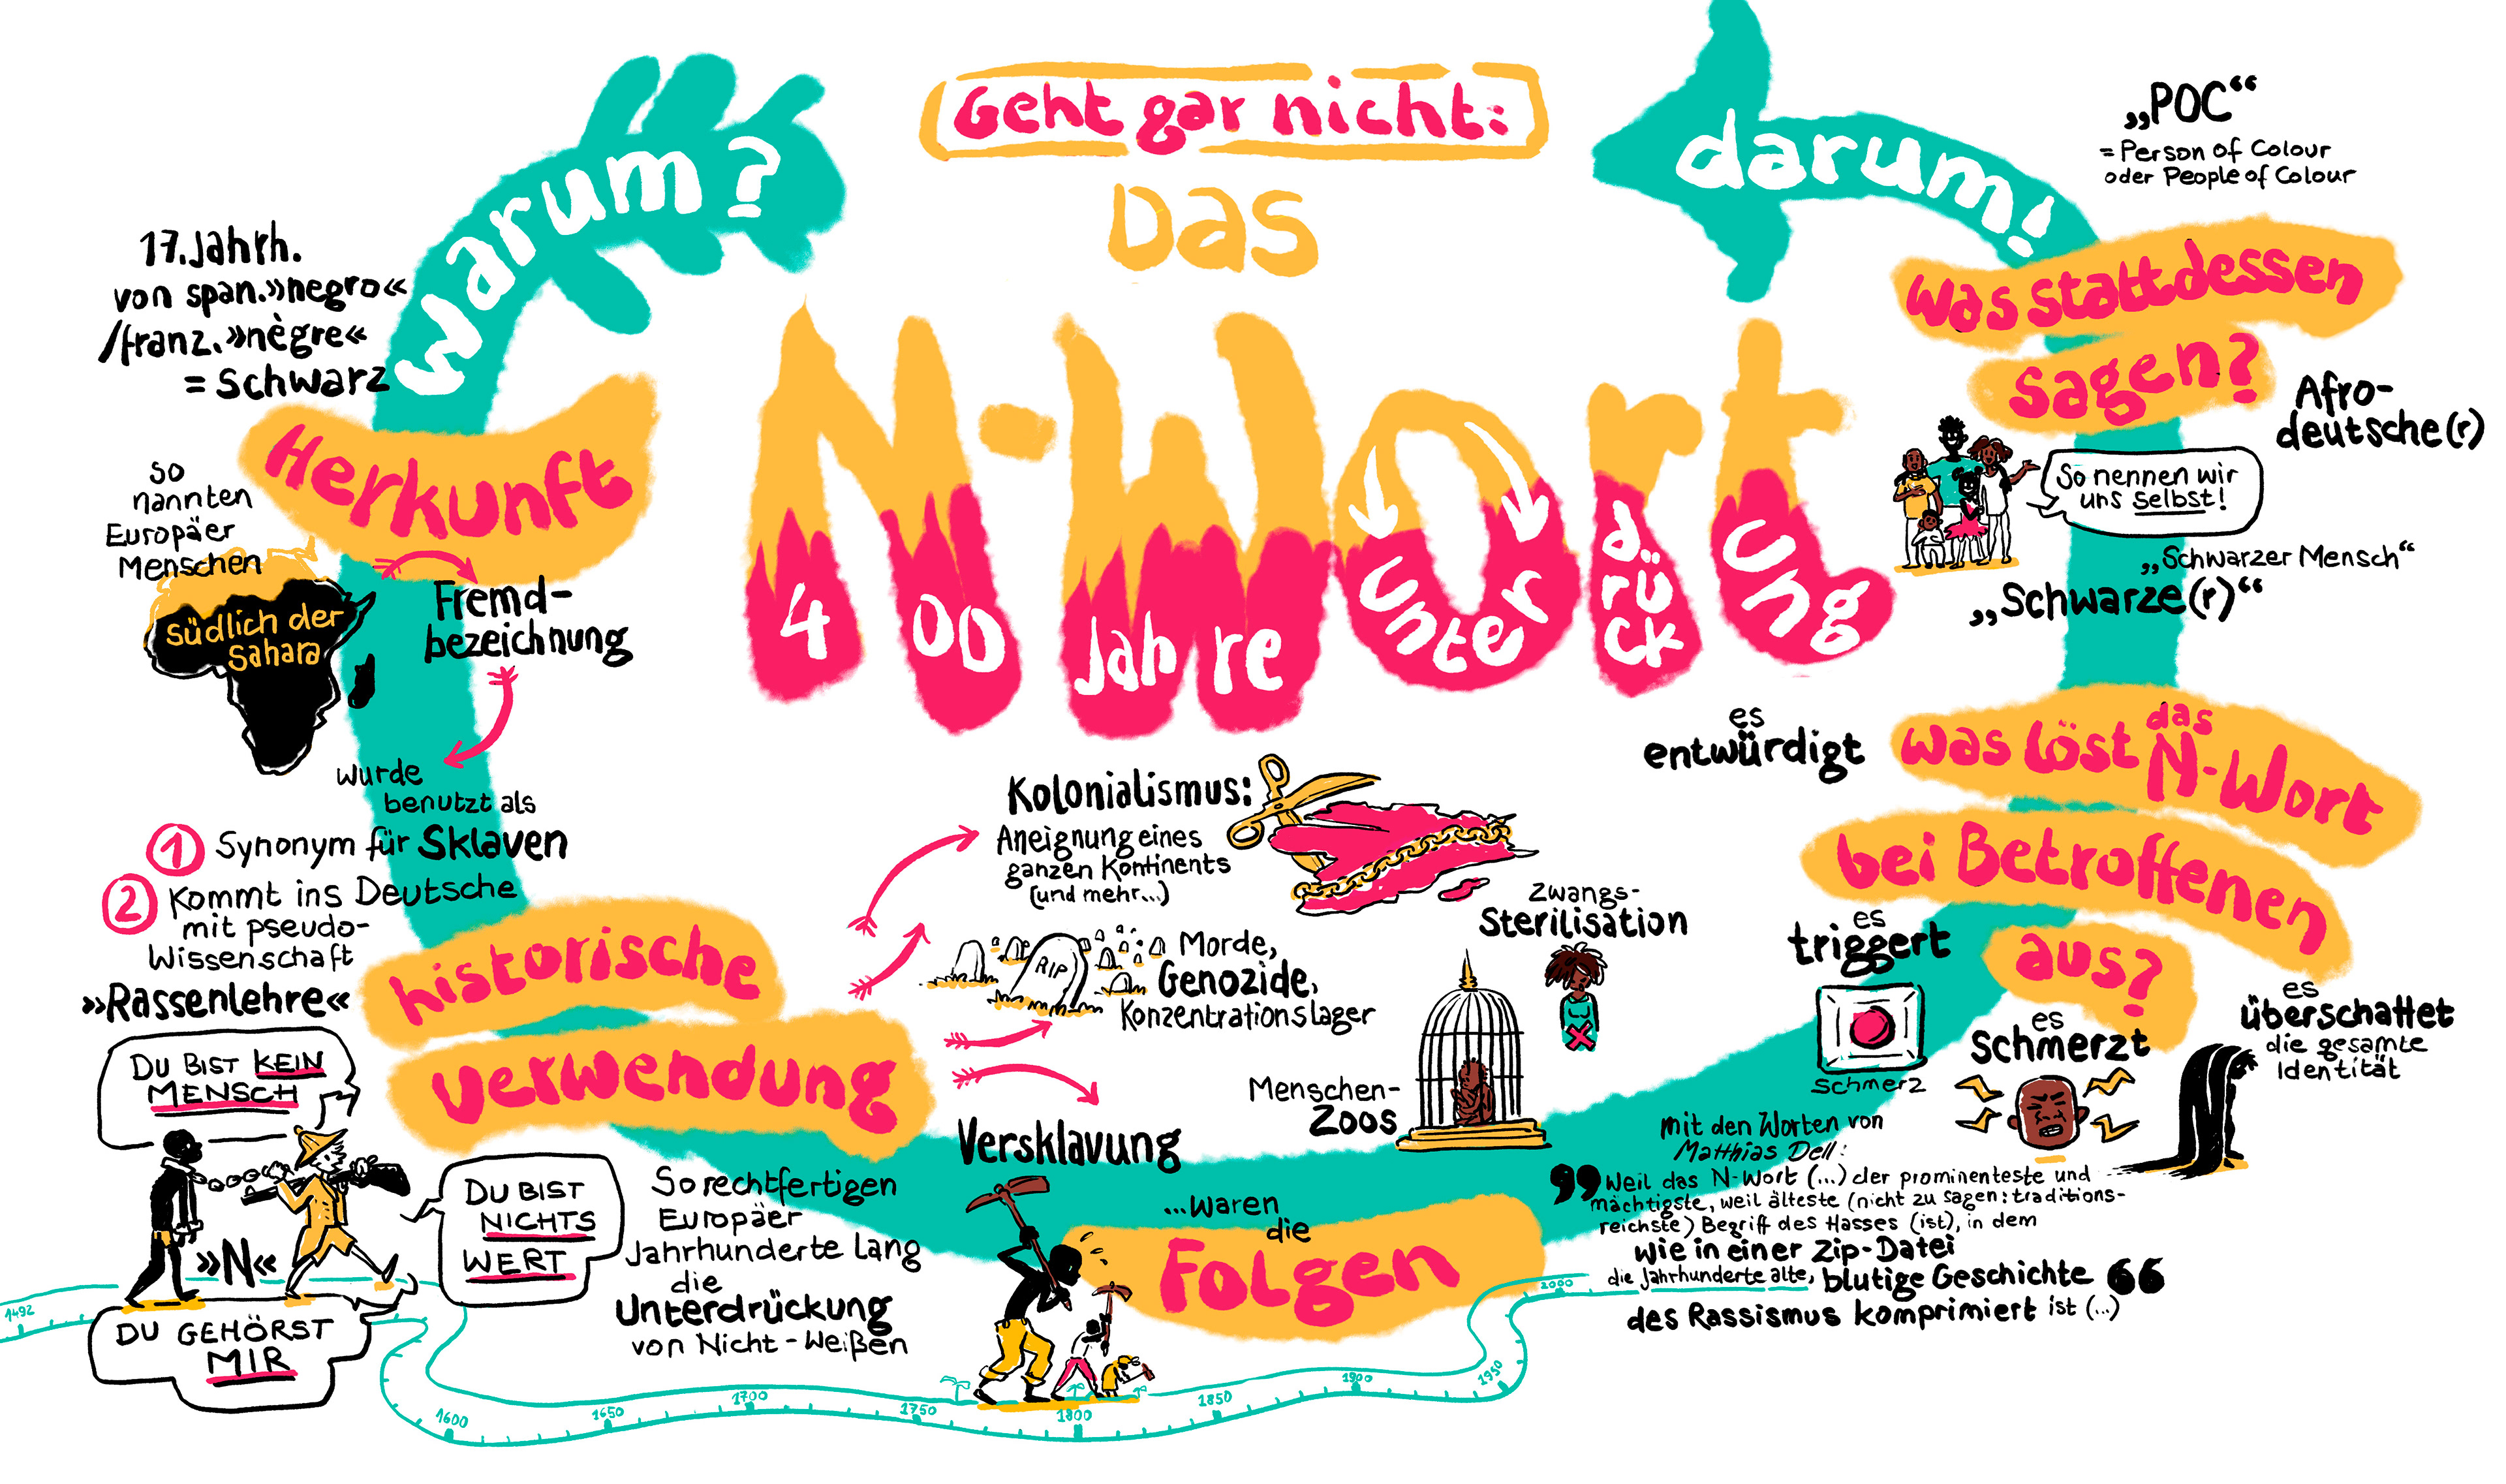 Geht gar nicht:
Das
N-Wort
400 Jahre Unterdrückung
Warum?
17. Jahrh.
von span. »negro«
/franz. »nègre«
= Schwarz
Herkunft
so
nannten
Europäer
Menschen
südlich der
Sahara
Fremd-
bezeichnung
wurde
benutzt als
1 Synonym für Sklaven
2 Kommt ins Deutsche
mit pseudo-
Wissenschaft
»Rassenlehre«
historische
Verwendung
DU BIST KEIN
MENSCH
DU BIST
NICHTS
WERT
»N«
DU GEHÖRST
MIR
So rechtfertigen
Europäer
Jahrhunderte Lang
die
Unterdrückung
von Nicht-Weißen
Kolonialismus:
Aneignung eines
ganzen Kontinents
(und mehr...)
RIP
Morde,
Genozide,
Konzentrationslager
Zwangs-
Sterilisation
Menschen-
Zoos
Versklavung
...waren
die
Folgen
1492
1600
1650
1700
1750
1800
1850
1900
1950
2000
mit den Worten von
Matthias Dell:
„Weil das N-Wort (...) der prominenteste und
mächtigste, weil älteste (nicht zu sagen: traditions-
reichste) Begriff des Hasses (ist), in dem
wie in einer Zip-Datei
die Jahrhunderte alte, blutige Geschichte
des Rassismus komprimiert ist (...)“
Was löst das
N-Wort
bei Betroffenen
aus?
es
entwürdigt
es
triggert
Schmerz
es
schmerzt
es
überschattet
die gesamte
Identität
Was stattdessen
sagen?
„POC“
= Person of Colour
oder People of Colour
Afro-
deutsche(r)
So nennen wir
uns selbst!
„Schwarzer Mensch“
„Schwarze(r)“
darum!